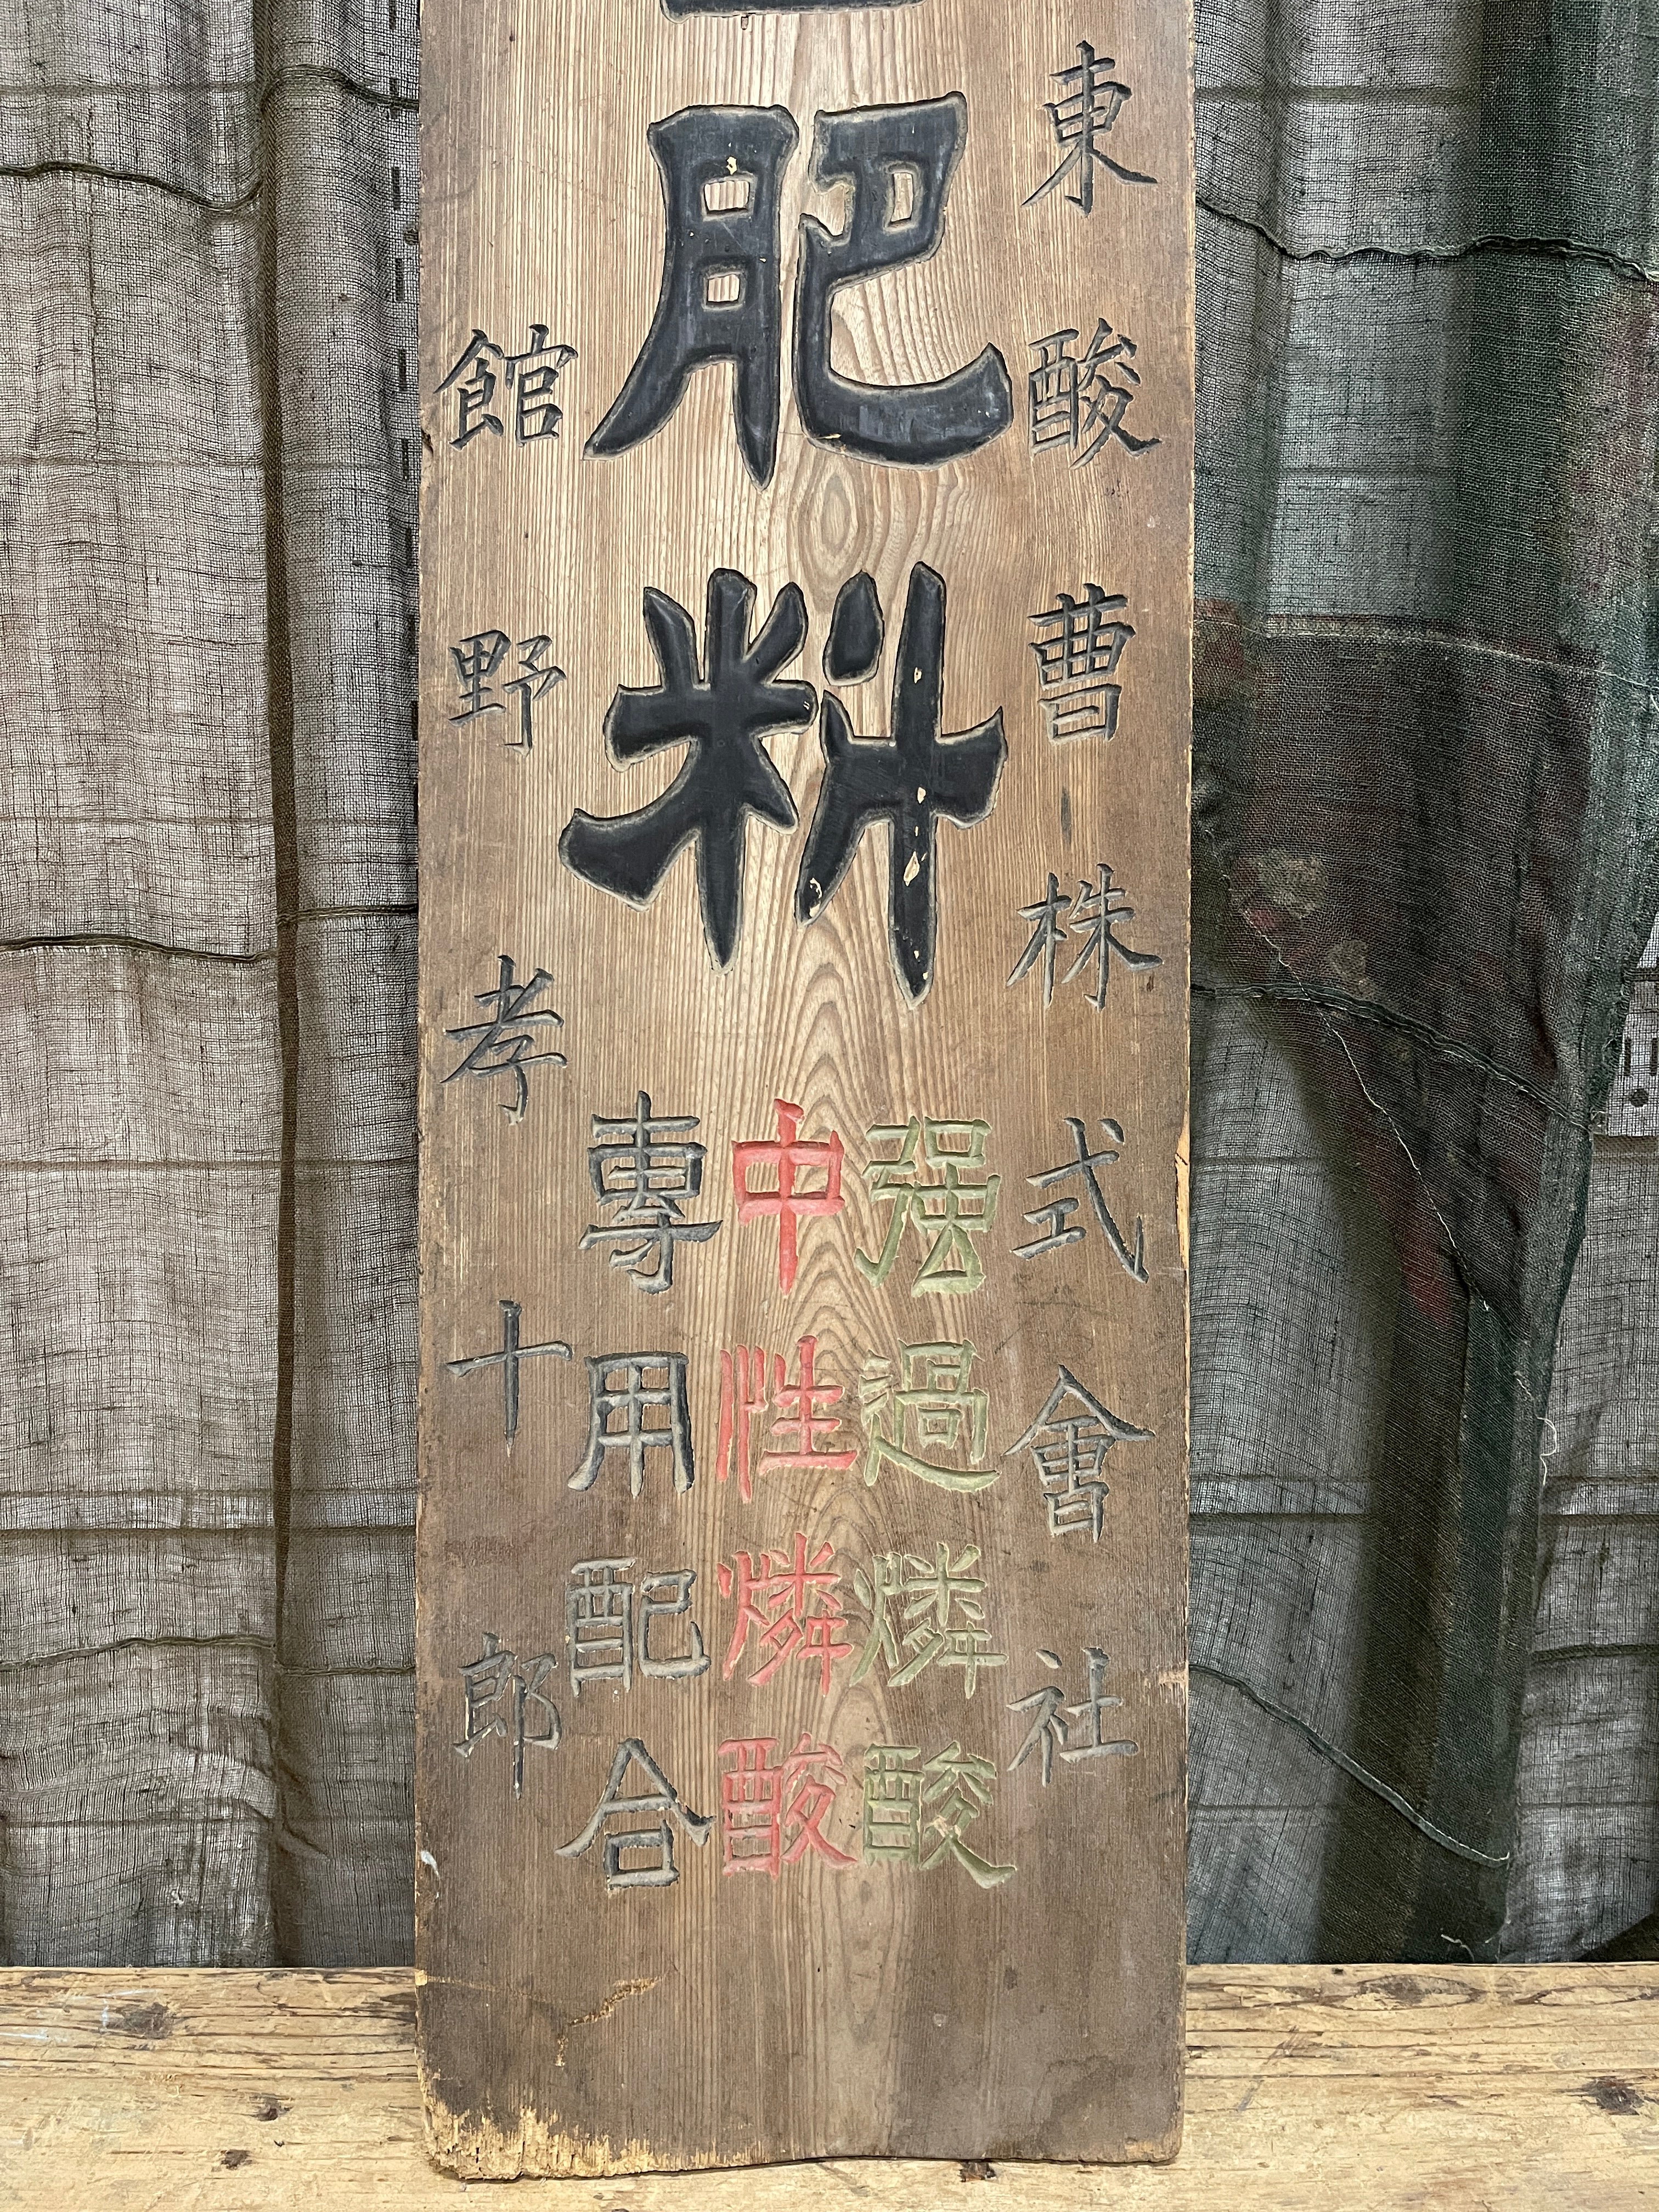 東酸曹株式會社
肥料
强過燐酸
中性燐酸
專用配合
館野孝十郎